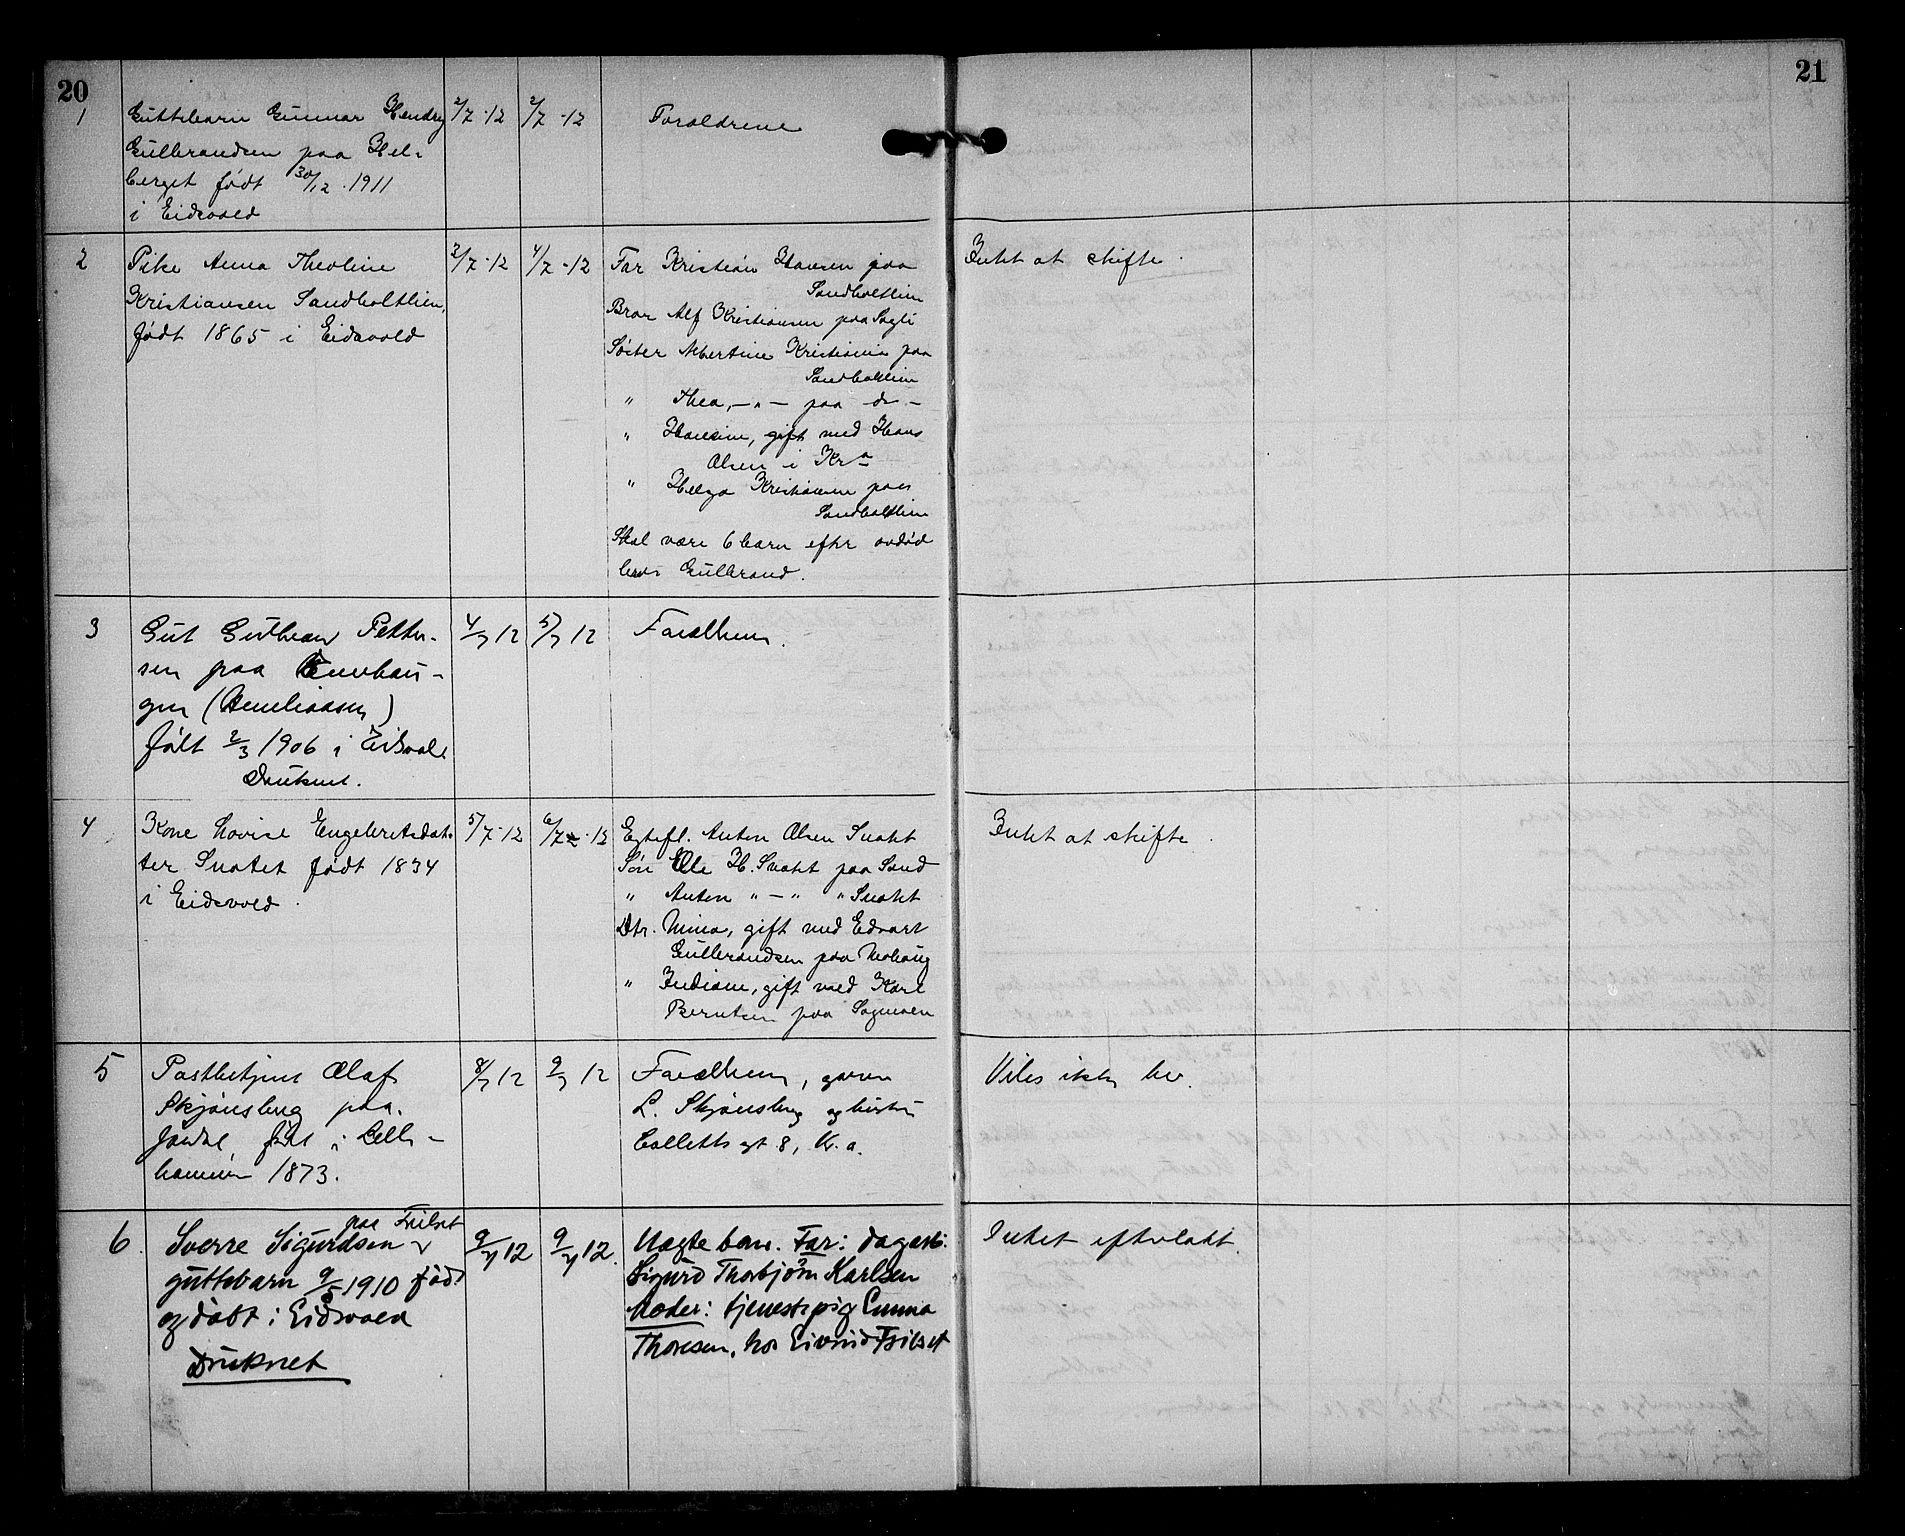 20
21
1
Guttebarn Gunnar Hendry
Gulbrandsen paa Hel-
berget født 30/12 . 1911
i Eidsvold
2/7 - 12
2/7 - 12
Foreldrene
2
Pike Anna Theoline
Kristiansen Sandholtlien,
født 1865 i Eidsvold
2/7 - 12
4/7 - 12
Far Kristian Hansen paa
Sandholtlien
Bror Alf Kristiansen paa Sagli
Søster Albertine Kristiansen paa
Sandholtlien
" Thea, - " - paa - do -
" Hansine, gift med Hans
Olsen i Kra
" Helga Kristiansen paa
Sandholtlien
Skal være 6 barn efter avdød
bror Gulbrand.
Intet at skifte.
3
Gut Petter-
sen paa
gen
født 2/3 1906 i Eidsvold
Druknet.
4/7 12
5/7 12
Forældrene.
4
Kone Lovise Engebretsdat-
ter Snatet født 1834
i Eidsvold.
5/7 - 12
6/7 - 12
Egtefl. Anton Olsen Snatet
Søn Ole H. Snatet paa Sand
" Anton " - " " Snatet
Dtr. Mina, gift med Edvart
Gullbrandsen paa
" Indiane, gift med Karl
Berntsen paa Sagmoen
Intet at skifte.
5
Postbetjent Olaf
Skjønsberg paa
født i Lille-
hammer 1873.
8/7 12
9/7 12
Forældrene,
L. Skjønsberg og hustru
Colletts gt. 8, Kr.a.
Viles ikke her.
6.
paa Frilset
Sverre Sigurdsen
guttebarn 9/5 1910 født
og døbt i Eidsvold
Druknet
9/7 12
9/7 12.
Uægte barn. Far: dagarb.
Sigurd Thorbjørn Karlsen
Moder: tjenestepig Emma
Thoresen, hos Eivind Frilset
Intet efterlatt.